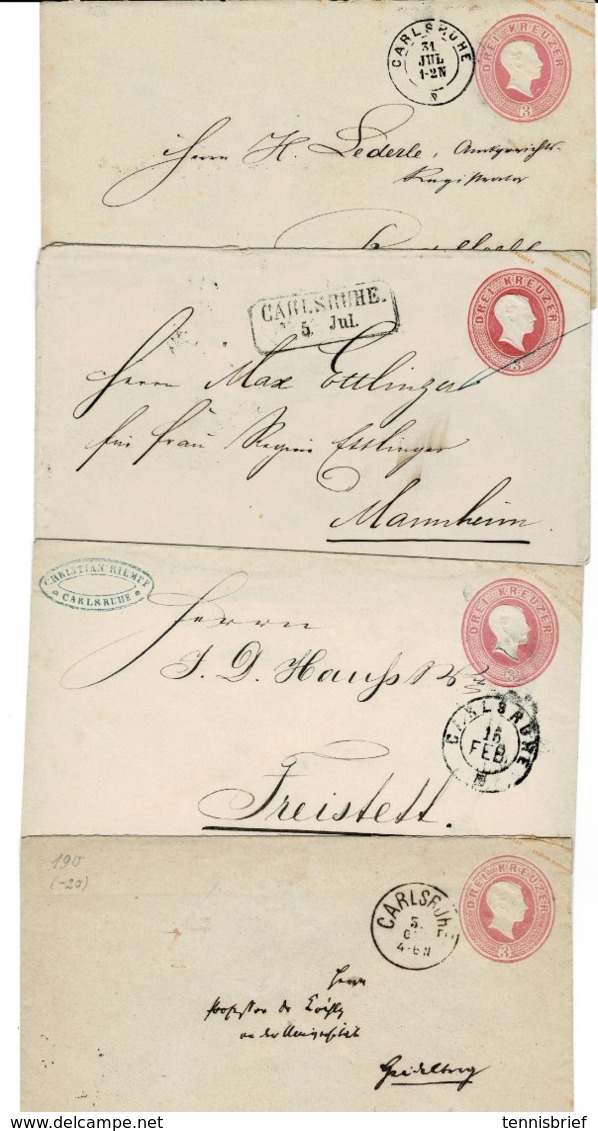 CARLSRUHE
31
JUL
1-2N
DREI KREUZER
3
Herrn H. Lederle, Amtsgerichts-
Registrator
CARLSRUHE.
5 Jul.
DREI KREUZER
3
Herrn Max Ettlinger
für Frau Regine Ettlinger
Mannheim
CHRISTIAN RIEMPP
CARLSRUHE
DREI KREUZER
3
Herrn
J. D. Hauss
CARLSRUHE
16
FEB.
Freistett.
190
(-20)
DREI KREUZER
3
CARLSRUHE
3.
4-6N
Herrn
Professor Dr Köchly
an der Universität
Heidelberg
tennisbrief